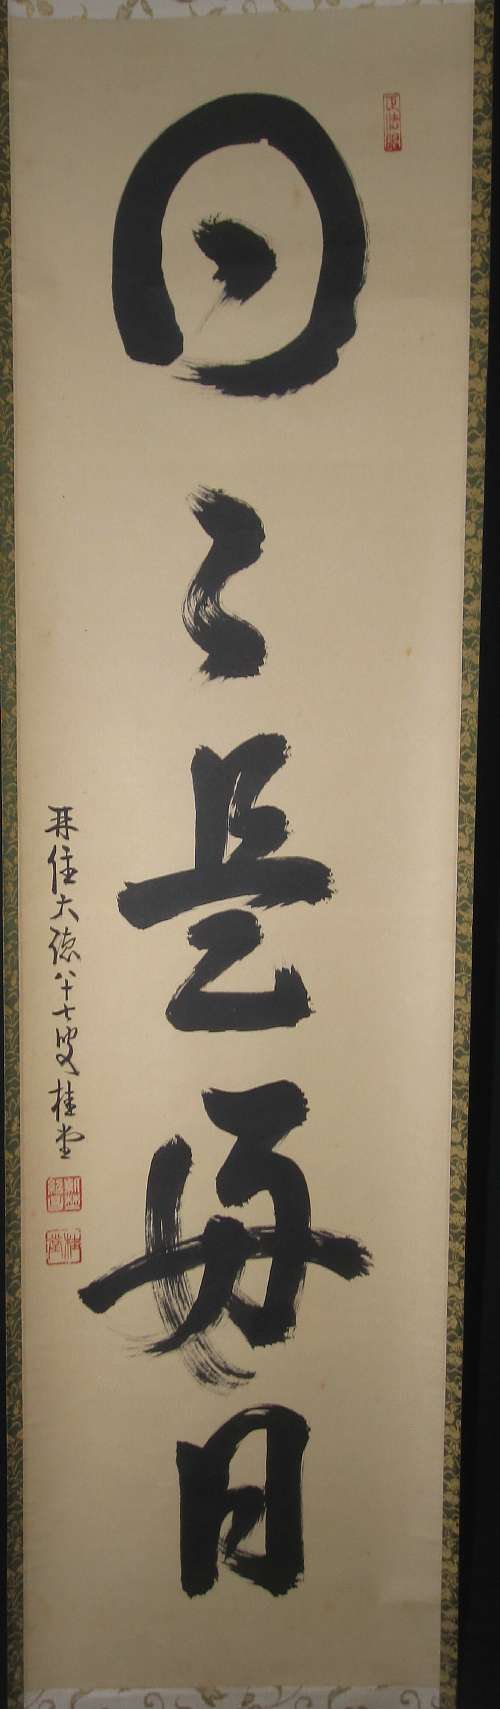 日々是好日
再住大徳八十七叟桂堂